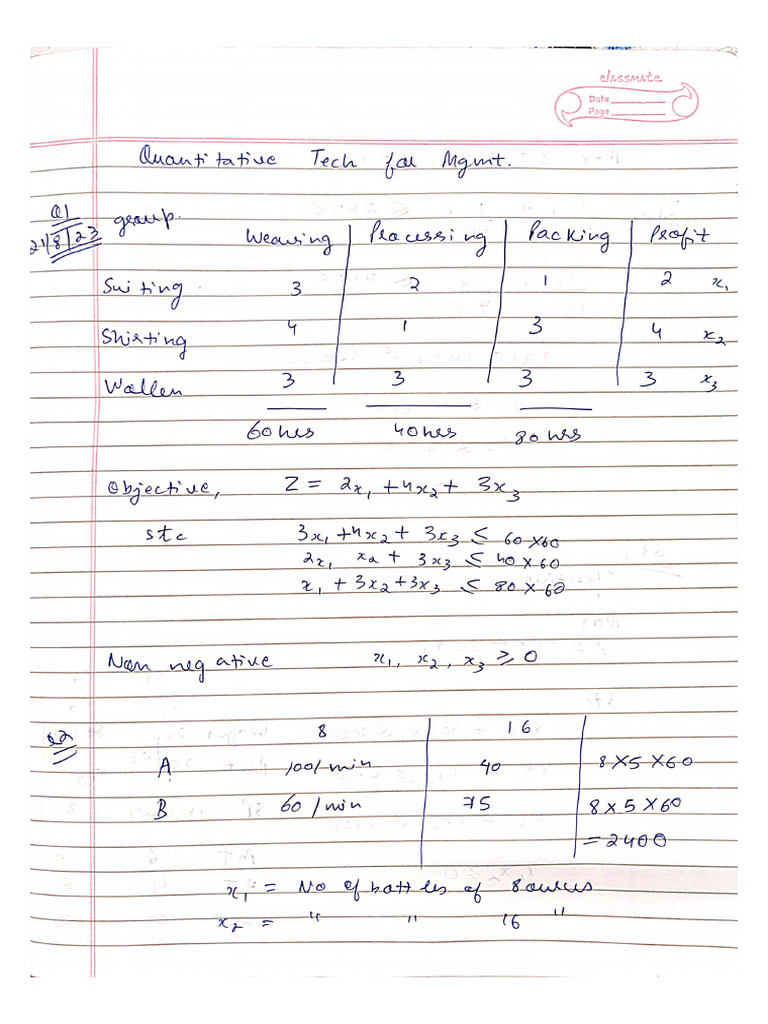 classmate
Date
Page
Quantitative Tech for Mgmt.
Q1
21/8/23
group. Weaving Processing Packing Profit
Suiting 3 2 1 2 x₁
Shirting 4 1 3 4 x₂
Wollen 3 3 3 3 x₃
60hrs 40hrs 80 hrs
Objective, Z = 2x₁ + 4x₂ + 3x₃
stc 3x₁ + 4x₂ + 3x₃ ≤ 60 x 60
2x₁ x₂ + 3x₃ ≤ 40 x 60
x₁ + 3x₂ + 3x₃ ≤ 80 x 60
Non negative x₁, x₂, x₃ ≥ 0
Q2 8 16
A 100/min 40 8 x 5 x 60
B 60/min 75 8 x 5 x 60
= 2400
x₁ = No of bottles of 8 ounces
x₂ = " " 16 "